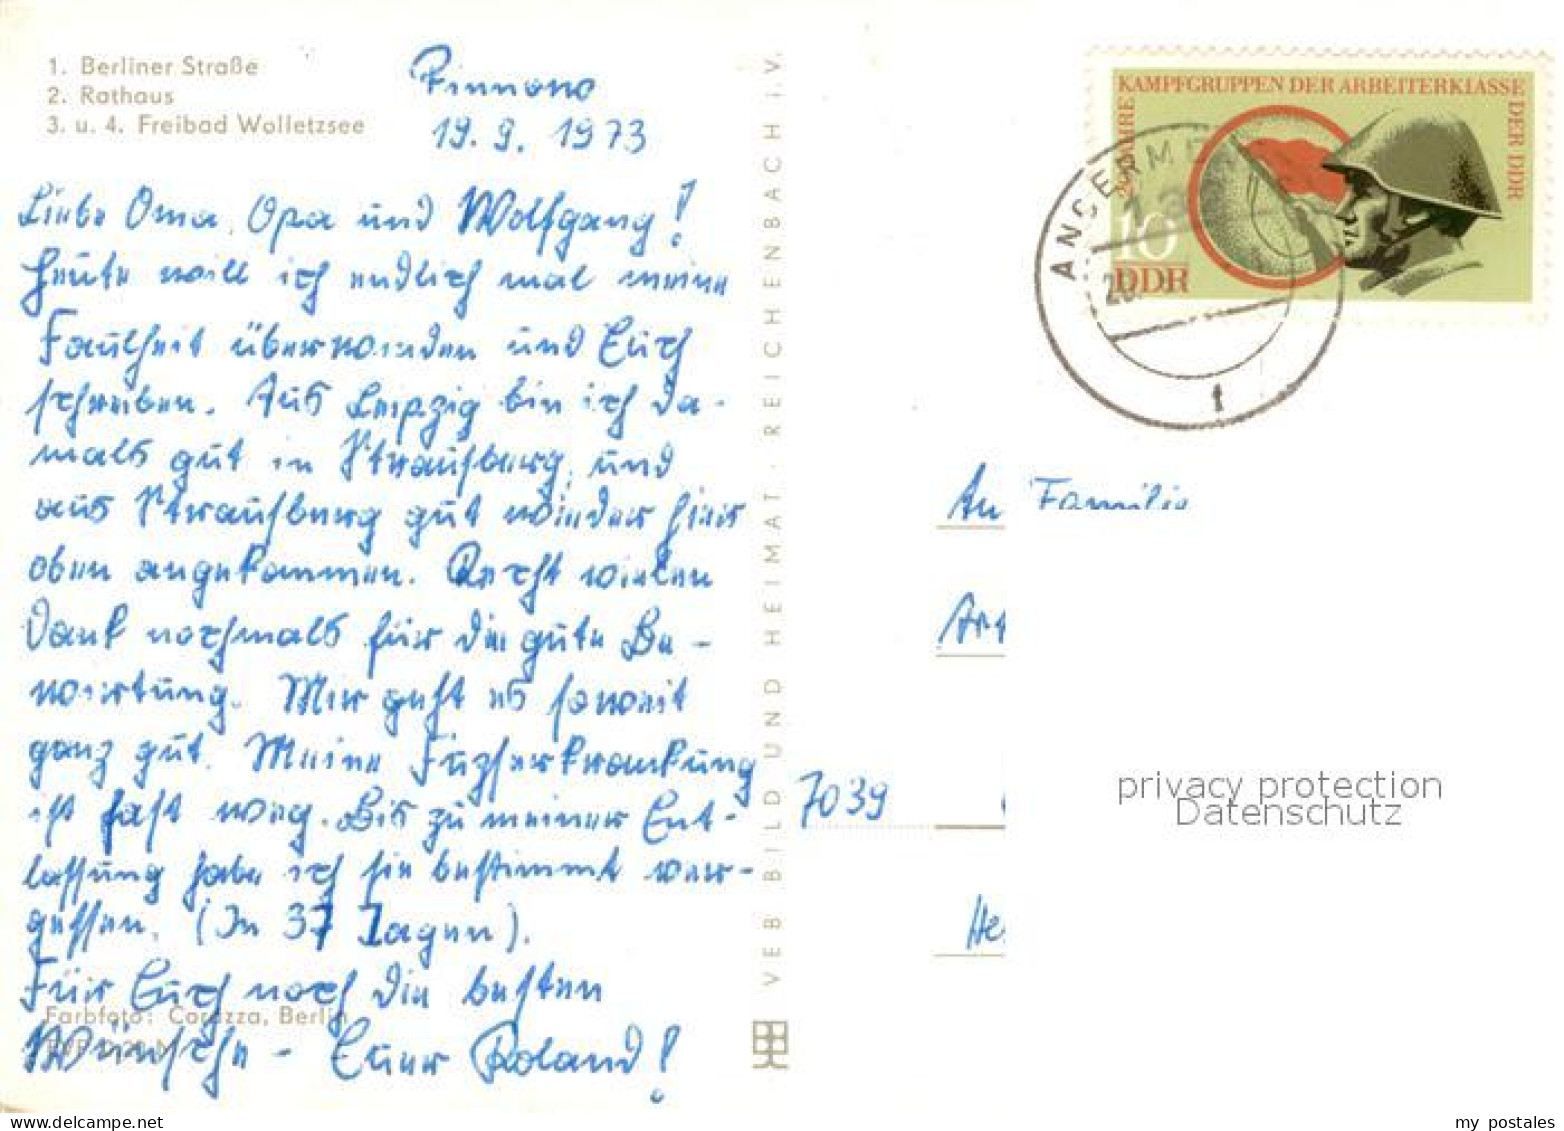 1. Berliner Straße
2. Rathaus
3. u. 4. Freibad Wolletzsee
Pinnono
19. 9. 1973
Liebe Oma, Opa und Wolfgang!
Heute will ich endlich mal meine
Faulheit überwinden und Euch
schreiben. Aus Leipzig bin ich da-
mals gut in Straußburg, und
aus Straußburg gut wieder hier
oben angekommen. Recht vielen
Dank nochmals für die gute Be-
wirtung. Mir geht es soweit
ganz gut. Meine Fußerkrankung
ist fast weg. Bis zu meiner Ent-
lassung habe ich sie bestimmt ver-
gessen. (In 37 Tagen).
Für Euch noch die besten
Wünsche - Euer Roland!
Farbfoto: Corazza, Berlin
VEB BILD UND HEIMAT · REICHENBACH i.V.
KAMPFGRUPPEN DER ARBEITERKLASSE DER DDR
10
DDR
ANGERM
20.
1
An Familie
7039
He
privacy protection
Datenschutz
my postales